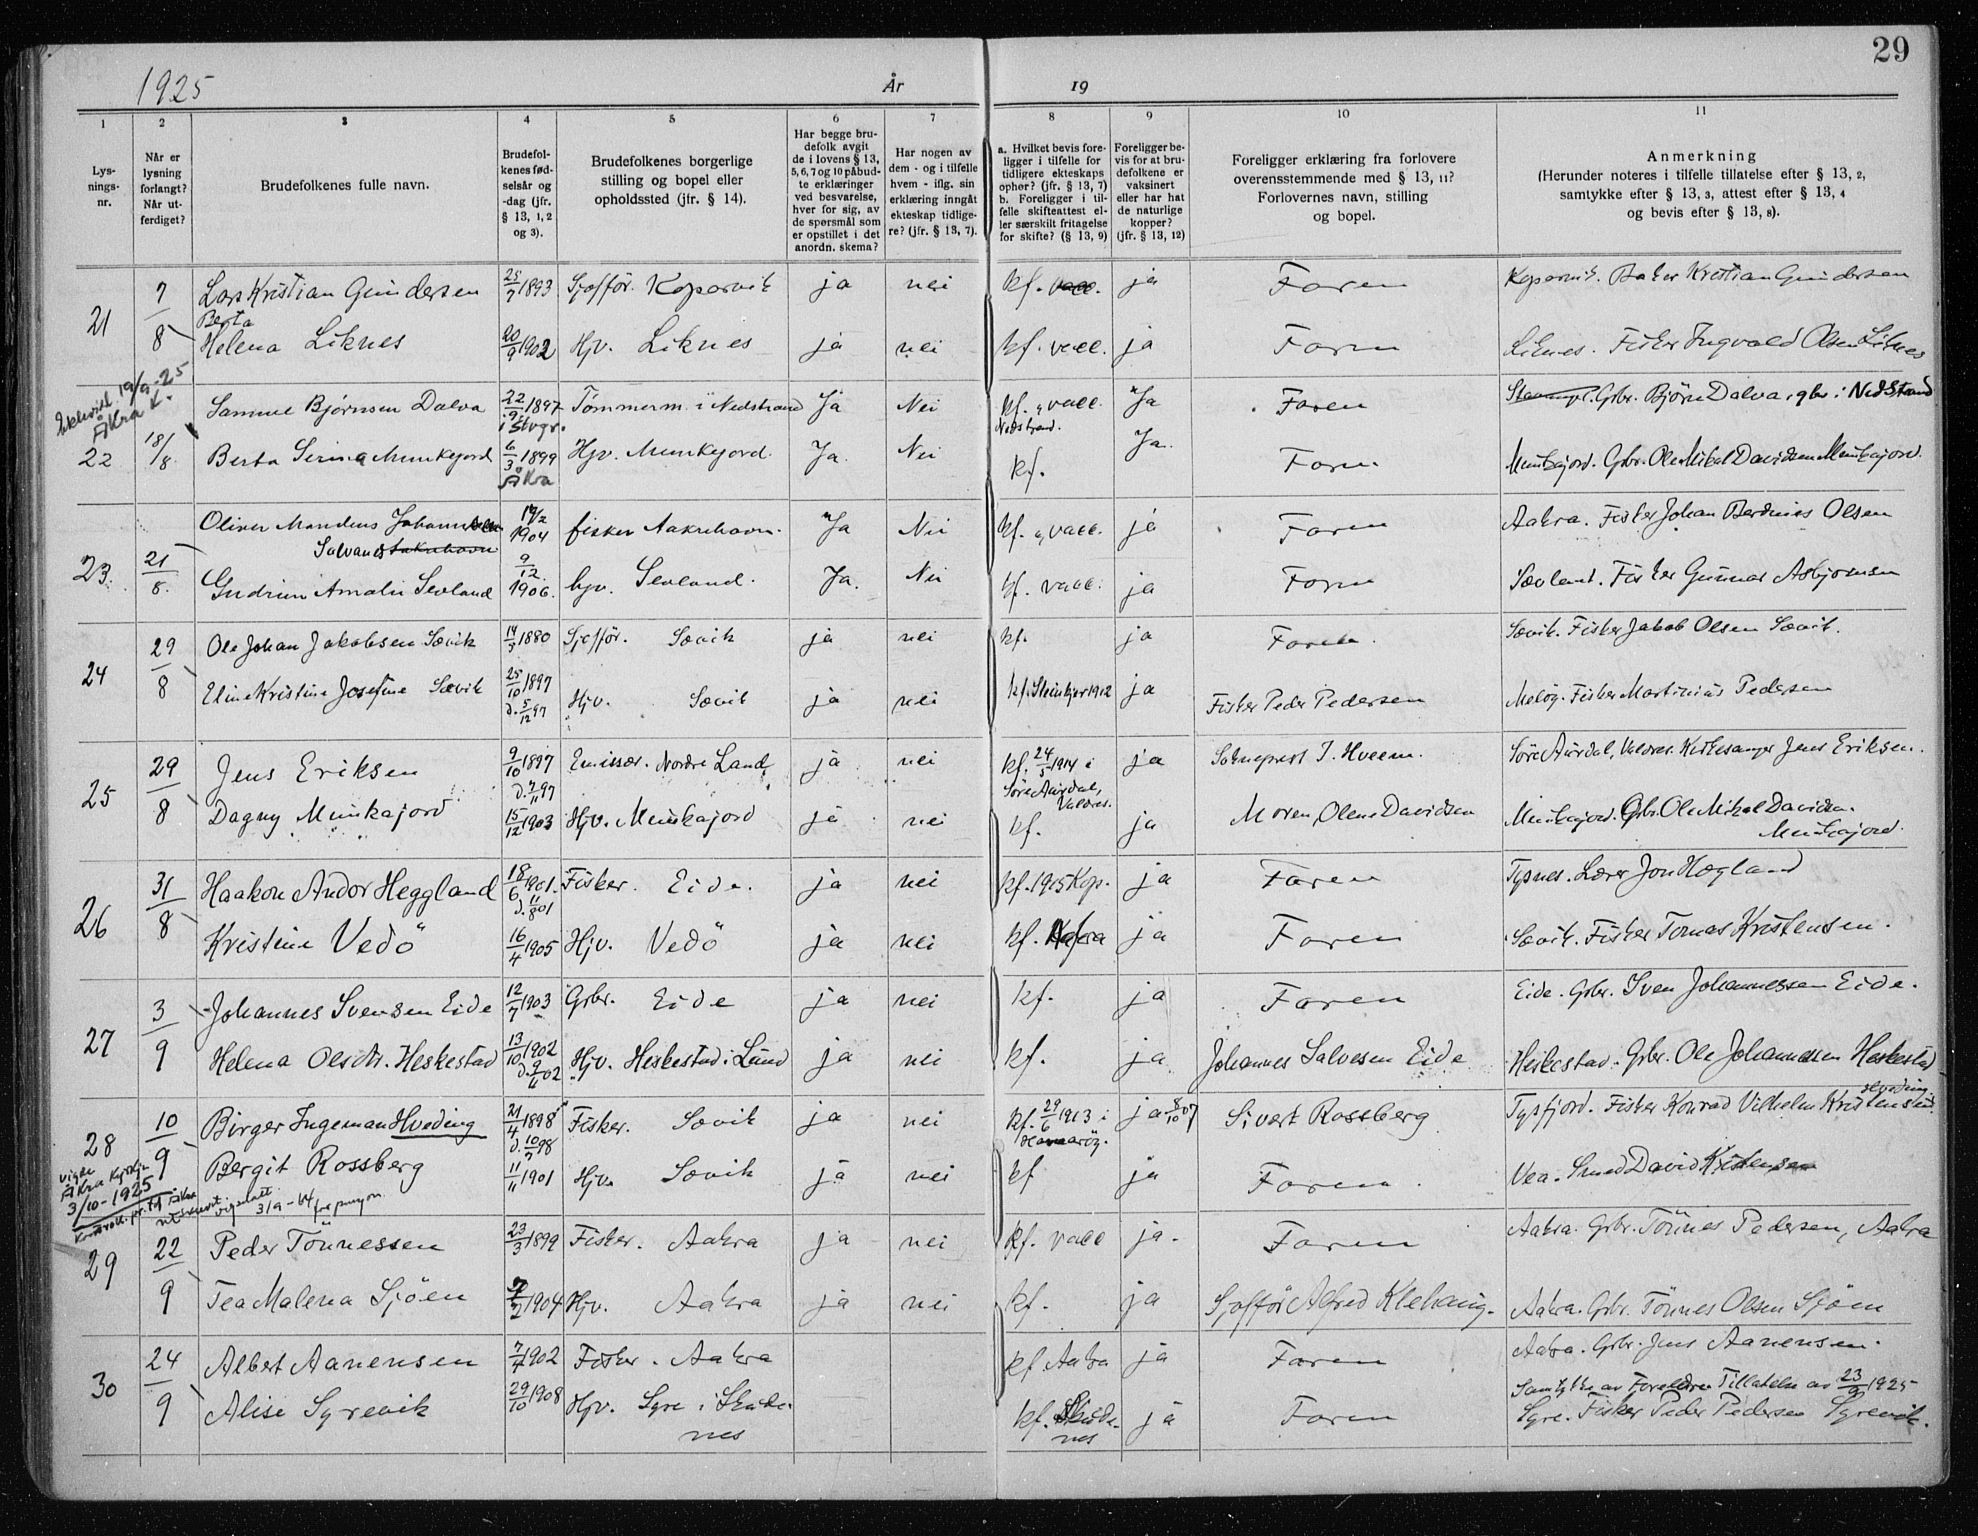 29
1925 År 19
1 2 3 4 5 6 7 8 9 10 11
Lys-
nings-
nr.
Når er
lysning
forlangt?
Når ut-
ferdiget?
Brudefolkenes fulle navn.
Brudefol-
kenes fød-
selsår og
-dag (jfr.
§ 13, 1, 2
og 3).
Brudefolkenes borgerlige
stilling og bopel eller
opholdssted (jfr. § 14).
Har begge bru-
defolk avgit
de i lovens § 13,
5, 6, 7 og 10 påbud-
te erklæringer
ved besvarelse,
hver for sig, av
de spørsmål som
er opstillet i det
anordn. skema?
Har nogen av
dem - og i tilfelle
hvem - iflg. sin
erklæring inngåt
ekteskap tidlige-
re? (jfr. § 13, 7).
a. Hvilket bevis fore-
ligger i tilfelle for
tidligere ekteskaps
ophør? (jfr. § 13, 7)
b. Foreligger i til-
felle skifteattest el-
ler særskilt fritagelse
for skifte? (§ 13, 9)
Foreligger be-
vis for at bru-
defolkene er
vaksinert
eller har hat
de naturlige
kopper?
(jfr. § 13, 12)
Foreligger erklæring fra forlovere
overensstemmende med § 13, 11?
Forlovernes navn, stilling
og bopel.
Anmerkning
(Herunder noteres i tilfelle tillatelse efter § 13, 2,
samtykke efter § 13, 3, attest efter § 13, 4
og bevis efter § 13, 8).
21 7/8 Lars Kristian Gundersen 25/7 1893 Sjofför. Kopervik ja nei kf. vacc. ja Faren Kopervik. Baker Kristian Gundersen
Berta
Helena Liknes 20/9 1902 Hjv. Liknes ja nei kf. vacc. ja Faren Liknes. Fisker Ingvald Olsen Liknes
19/9-25
Åkra K.
22 18/8 Samuel Bjørnsen Dalva 22/9 1897 i Stvgr. Tømmerm. i Nedstrand Ja Nei kf. og vacc. Nedstrand. Ja Faren Grbr. Bjørn Dalva, gbr i Nedstrand
Berta Serina Munkejord 6/3 1899 Åkra Hjv. Munkejord. Ja. Nei kf. Ja. Faren. Munkajord. Grbr. Ole Mikal Davidsen Munkajord.
23. 21/8. Oliver Mandius Johannesen 19/2 1904 fisker Aakrehavn. Ja Nei kf. og vacc. ja Faren Aakra. Fisker Johan Berdinius Olsen
Salvanes Aakrehavn
Gudrun Amalie Sevland 9/12. 1906. hjv. Sevland. Ja. Nei kf. vacc. ja Faren Sævland. Fisker Gunnar Asbjørnsen
24 29/8 Ole Johan Jakobsen Sævik 14/3 1880 Sjofför. Sævik ja nei kf. ja Faren. Sævik. Fisker Jakob Olsen Sævik.
Eline Kristine Josefine Sævik 25/10 1897 d. 5/12 97 Hjv. Sævik ja nei kf. Steinkjer 1912 ja Fisker Peder Pedersen Meløy. Fisker Martinius Pedersen
25 29/8 Jens Eriksen 9/10 1897 d. 7/11 97 Emissær. Nordre Land ja nei kf. 24/5 1914 i Søre Aurdal, Valdres. ja Sokneprest J. Hveem. Søre Aurdal, Valdres. Kirkesanger Jens Eriksen.
Dagny Munkajord 15/12 1903 Hjv. Munkajord ja nei kf. ja Moren, Olene Davidsen Munkajord. Grbr. Ole Mikal Davidsen.
Munkajord.
26 31/8 Haakon Andor Heggland 18/6 1901. d. 11/8 01 Fisker. Eide. ja nei kf. 1915 Kop. ja Faren Tysnes. Lærer Jon Hægland
Kristine Vedö 16/4 1905 Hjv. Vedö ja nei kf. Aakra ja Faren Sævik. Fisker Tomas Kristensen.
27 3/9 Johannes Svensen Eide 12/7 1903 Grbr. Eide ja nei kf. ja Faren Eide. Grbr. Sven Johannessen Eide.
Helena Olsdtr. Heskestad 13/10 1902 d. 9/11 02 Hjv. Heskestad i Lund ja nei kf. ja Johannes Salvesen Eide Heskestad. Grbr. Ole Johannessen Heskestad
28 10/9 Birger Ingeman Hveding 21/4 1898 d. 10/7 98 Fisker. Sævik ja nei kf. 29/6 1913 i Hamarøy. ja 8/10 07 Sivert Rossberg Tysfjord. Fisker Konrad Vilhelm Kristensen Hveding
Bergit Rossberg 11/11 1901 Hjv. Sævik ja nei kf ja Faren. Vea. Smed David Kristensen
Vigde
Åkra Kyrkje
3/10-1925
29 22/9 Peder Tönnessen 23/3 1899 Fisker. Aakra ja nei kf. vacc ja. Faren Aakra. Grbr. Tönnes Pedersen, Aakra
Tea Malena Sjöen 7/2 1904 Hjv. Aakra ja nei kf. ja Sjofför Alfred Klehaug. Aakra. Grbr. Tönnes Olsen Sjöen
30 24/9 Albert Aanensen 7/4 1902 Fisker. Aakra kf Aakra ja Faren Aakra. Grbr. Jens Aanensen.
Samtykke av Foreldre. Tillatelse av 23/9 1925
Alise Syrevik 29/10 1908 Hjv. Syre i Skude-
nes kf. Skude-
nes ja Faren Syre. Fisker Peder Pedersen Syrevik.